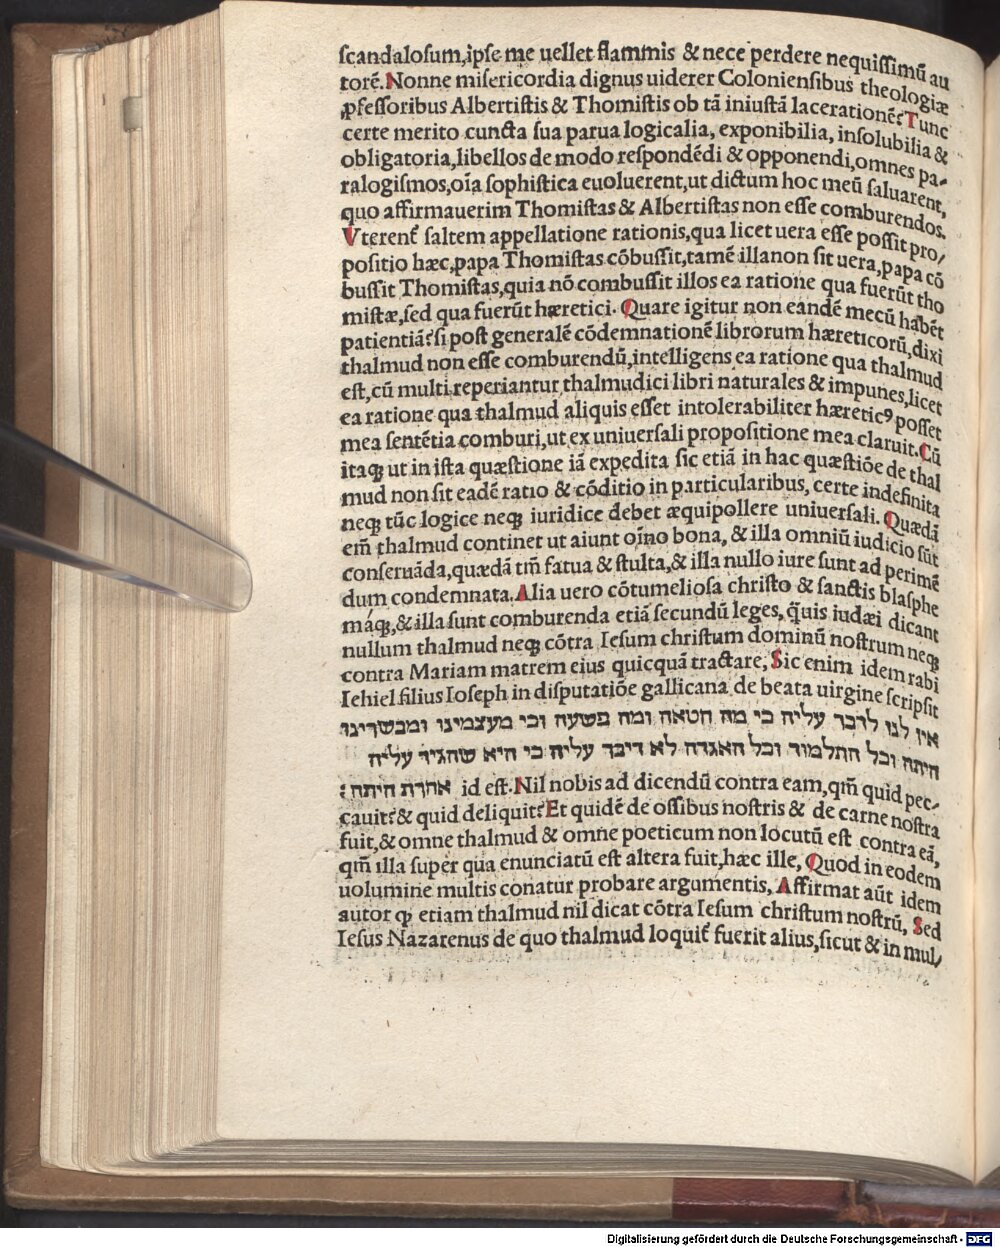 scandalosum,ipse me uellet flammis & nece perdere nequissimũ au
torẽ. Nonne misericordia dignus uiderer Coloniensibus theologiæ
ꝓfessoribus Albertistis & Thomistis ob tã iniustã lacerationẽ? Tunc
certe merito cuncta sua parua logicalia, exponibilia, insolubilia &
obligatoria,libellos de modo respondẽdi & opponendi,omnes pa-
ralogismos,oĩa sophistica euoluerent,ut dictum hoc meũ saluarent,
quo affirmauerim Thomistas & Albertistas non esse comburendos.
Vterent᷑ saltem appellatione rationis,qua licet uera esse possit pro/
positio hæc,papa Thomistas cõbussit,tamẽ illa non sit uera,papa cõ
bussit Thomistas,quia nõ combussit illos ea ratione qua fuerũt tho
mistæ,sed qua fuerũt hæretici. Quare igitur non eandẽ mecũ habẽt
patientiã?si post generalẽ cõdemnationẽ librorum hæreticorũ,dixi
thalmud non esse comburendũ,intelligens ea ratione qua thalmud
est,cũ multi reperiantur thalmudici libri naturales & impunes,licet
ea ratione qua thalmud aliquis esset intolerabiliter hæreticꝰ posset
mea sentẽtia comburi,ut ex uniuersali propositione mea claruit. Cũ
itaqꝫ ut in ista quæstione iã expedita sic etiã in hac quæstiõe de thal
mud non sit eadẽ ratio & cõditio in particularibus, certe indefinita
neqꝫ tũc logice neqꝫ iuridice debet æquipollere uniuersali. Quædã
em̃ thalmud continet ut aiunt oĩno bona, & illa omniũ iudicio sũt
conseruãda,quædã tm̃ fatua & stulta,& illa nullo iure sunt ad perimẽ
dum condemnata. Alia uero cõtumeliosa christo & sanctis blasphe
máqꝫ,& illa sunt comburenda etiã secundũ leges, q̃uis iudæi dicant
nullum thalmud neqꝫ cõtra Iesum christum dominũ nostrum neqꝫ
contra Mariam matrem eius quicquã tractare, Sic enim idem rabi
Iehiel filius Ioseph in disputatiõe gallicana de beata uirgine scripsit
אין לנו לדבר עליה כי מה חטאה ומה פשעה וכי מעצמינו ומבשרינו
היתה וכל התלמוד וכל האגדה לא דיבר עליה כי היא שהגיד עליה
אחרת היתה׃ id est. Nil nobis ad dicendũ contra eam,qm̃ quid pec-
cauit?& quid deliquit? Et quidẽ de ossibus nostris & de carne nostra
fuit,& omne thalmud & omne poeticum non locutũ est contra eã,
qm̃ illa super qua enunciatũ est altera fuit,hæc ille, Quod in eodem
uolumine multis conatur probare argumentis, Affirmat aũt idem
autor ꝙ etiam thalmud nil dicat cõtra Iesum christum nostrũ, Sed
Iesus Nazarenus de quo thalmud loquit᷑ fuerit alius,sicut & in mul/
Digitalisierung gefördert durch die Deutsche Forschungsgemeinschaft - DFG